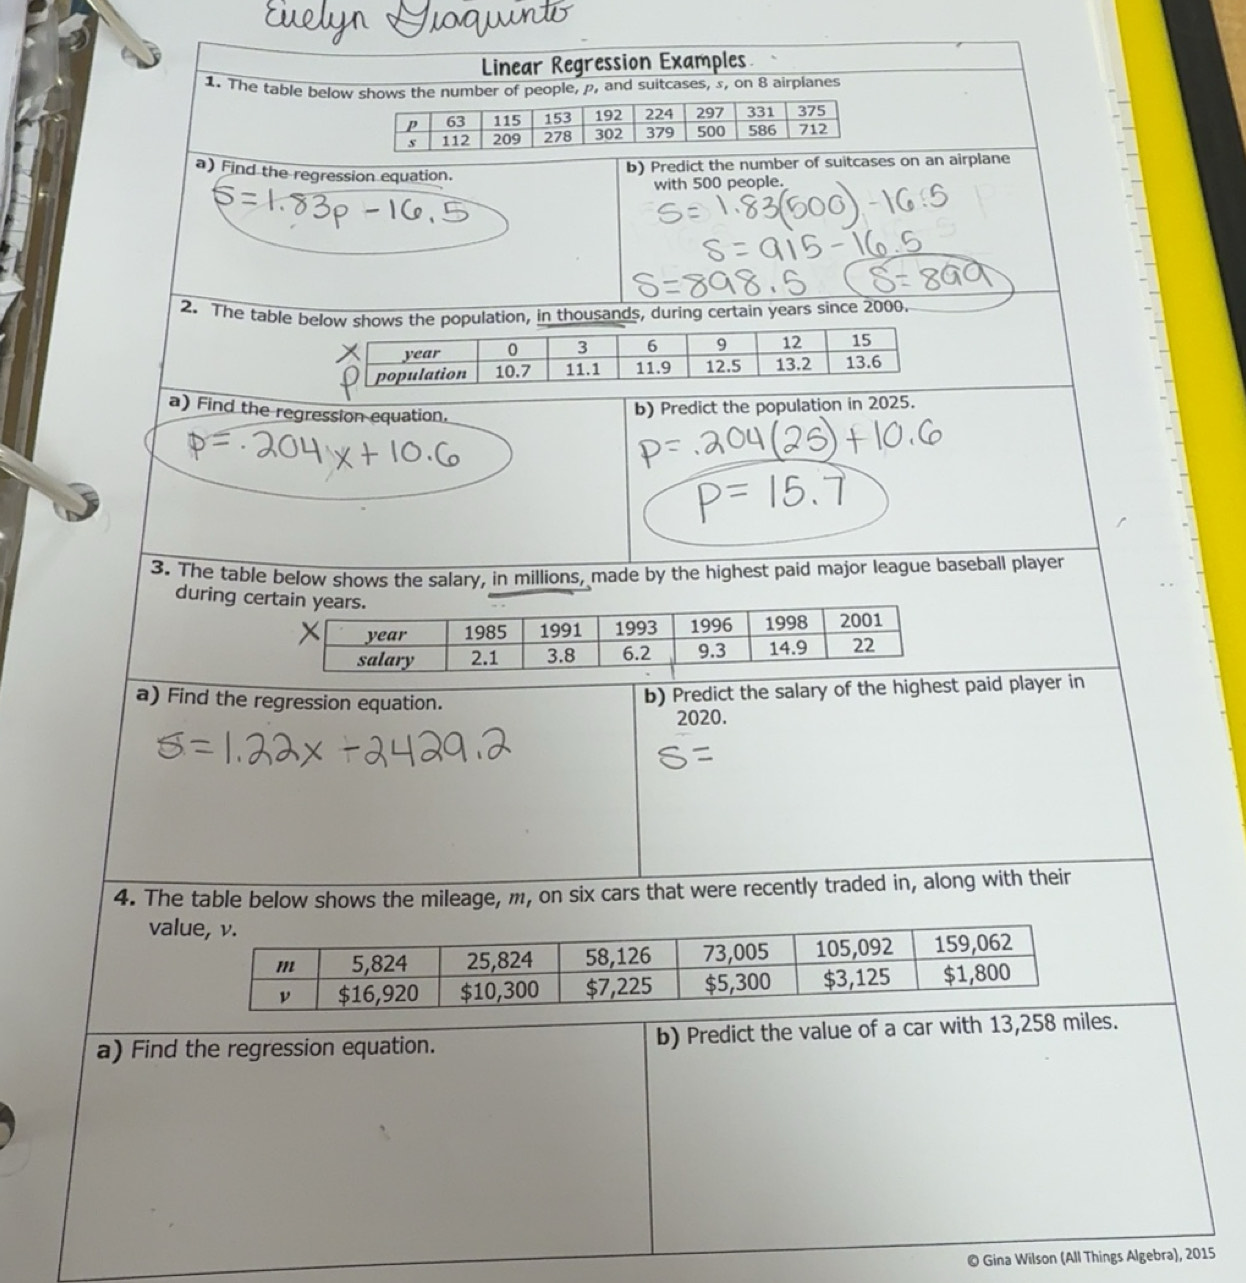 Evelyn Giaquinto
Linear Regression Examples
1. The table below shows the number of people, p, and suitcases, s, on 8 airplanes
p 63 115 153 192 224 297 331 375
s 112 209 278 302 379 500 586 712
a) Find the regression equation.
s=1.83p-16.5
b) Predict the number of suitcases on an airplane
with 500 people.
s=1.83(500)-16.5
s=915-16.5
s=898.5 s=899
2. The table below shows the population, in thousands, during certain years since 2000.
x year 0 3 6 9 12 15
p population 10.7 11.1 11.9 12.5 13.2 13.6
a) Find the regression equation.
p=.204x+10.6
b) Predict the population in 2025.
p=.204(25)+10.6
p=15.7
3. The table below shows the salary, in millions, made by the highest paid major league baseball player
during certain years.
x year 1985 1991 1993 1996 1998 2001
salary 2.1 3.8 6.2 9.3 14.9 22
a) Find the regression equation.
s=1.22x-2429.2
b) Predict the salary of the highest paid player in
2020.
s=
4. The table below shows the mileage, m, on six cars that were recently traded in, along with their
value, v.
m 5,824 25,824 58,126 73,005 105,092 159,062
v $16,920 $10,300 $7,225 $5,300 $3,125 $1,800
a) Find the regression equation.
b) Predict the value of a car with 13,258 miles.
© Gina Wilson (All Things Algebra), 2015